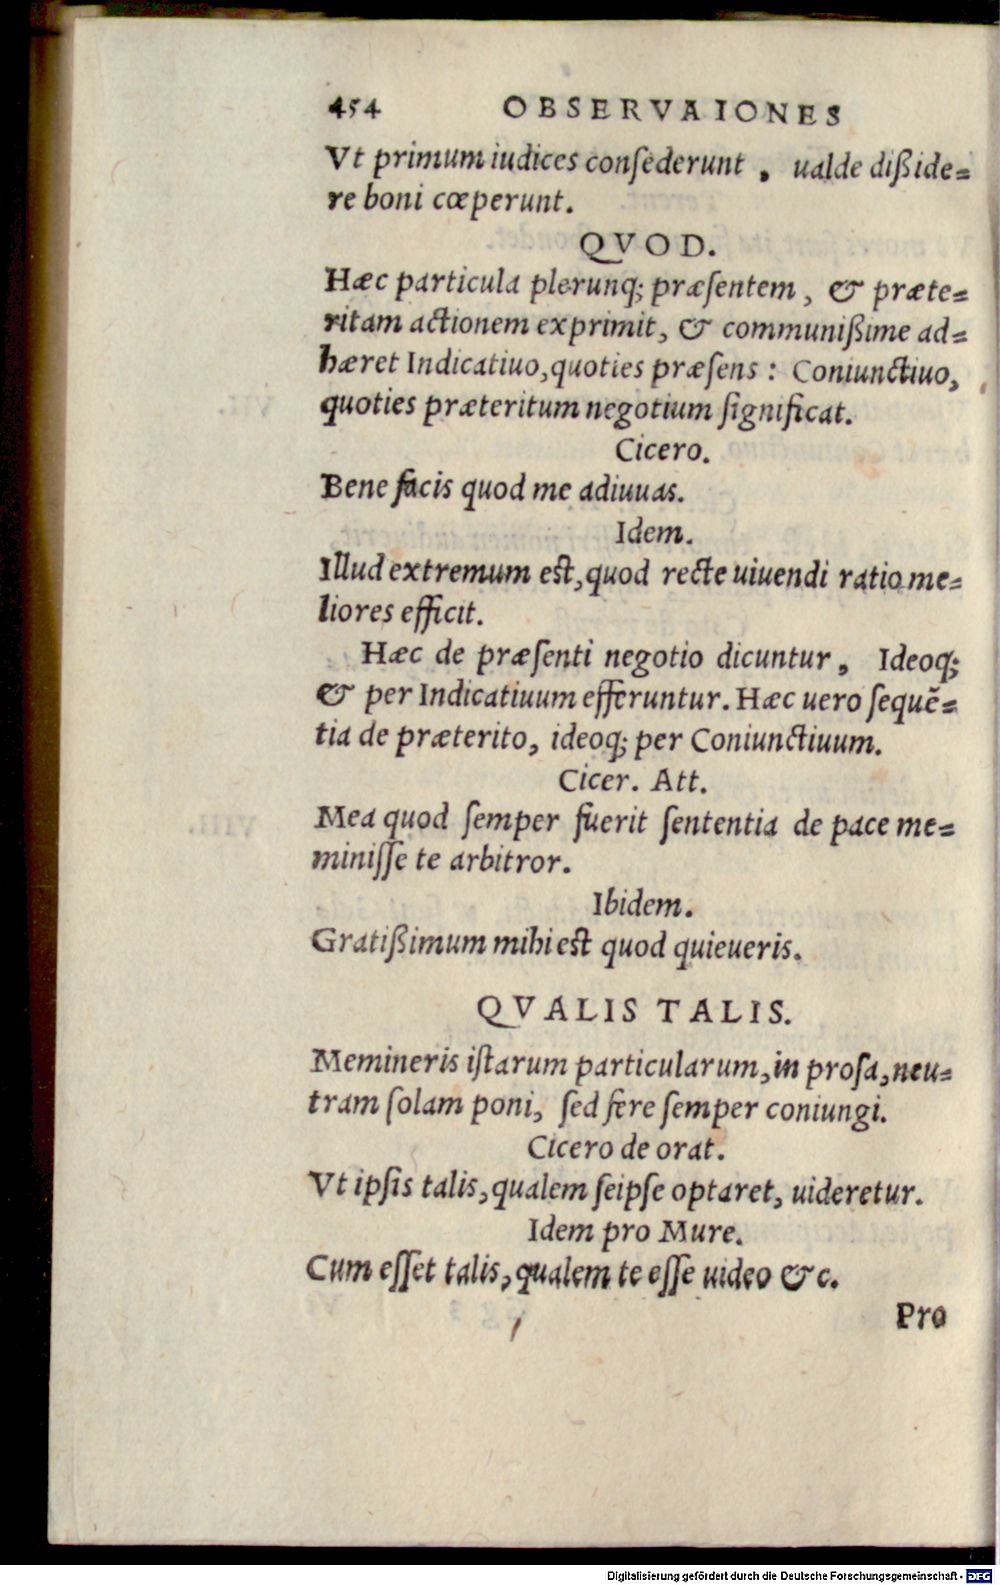 454 OBSERVAIONES
Vt primum iudices conſederunt, ualde dißide=
re boni cœperunt.
QVOD.
Hæc particula plerunq; præſentem, & præte=
ritam actionem exprimit, & communißime ad=
hæret Indicatiuo, quoties præſens: Coniunctiuo,
quoties præteritum negotium ſignificat.
Cicero.
Bene facis quod me adiuuas.
Idem.
Illud extremum est, quod recte uiuendi ratio me=
liores efficit.
Hæc de præſenti negotio dicuntur, Ideoq;
& per Indicatiuum efferuntur. Hæc uero ſequẽ=
tia de præterito, ideoq; per Coniunctiuum.
Cicer. Att.
Mea quod ſemper fuerit ſententia de pace me=
miniſſe te arbitror.
Ibidem.
Gratißimum mihi est quod quieueris.
QVALIS TALIS.
Memineris iſtarum particularum, in proſa, neu=
tram ſolam poni, ſed fere ſemper coniungi.
Cicero de orat.
Vt ipſis talis, qualem ſeipſe optaret, uideretur.
Idem pro Mure.
Cum eſſet talis, qualem te eſſe uideo & c.
Pro
Digitalisierung gefördert durch die Deutsche Forschungsgemeinschaft - DFG